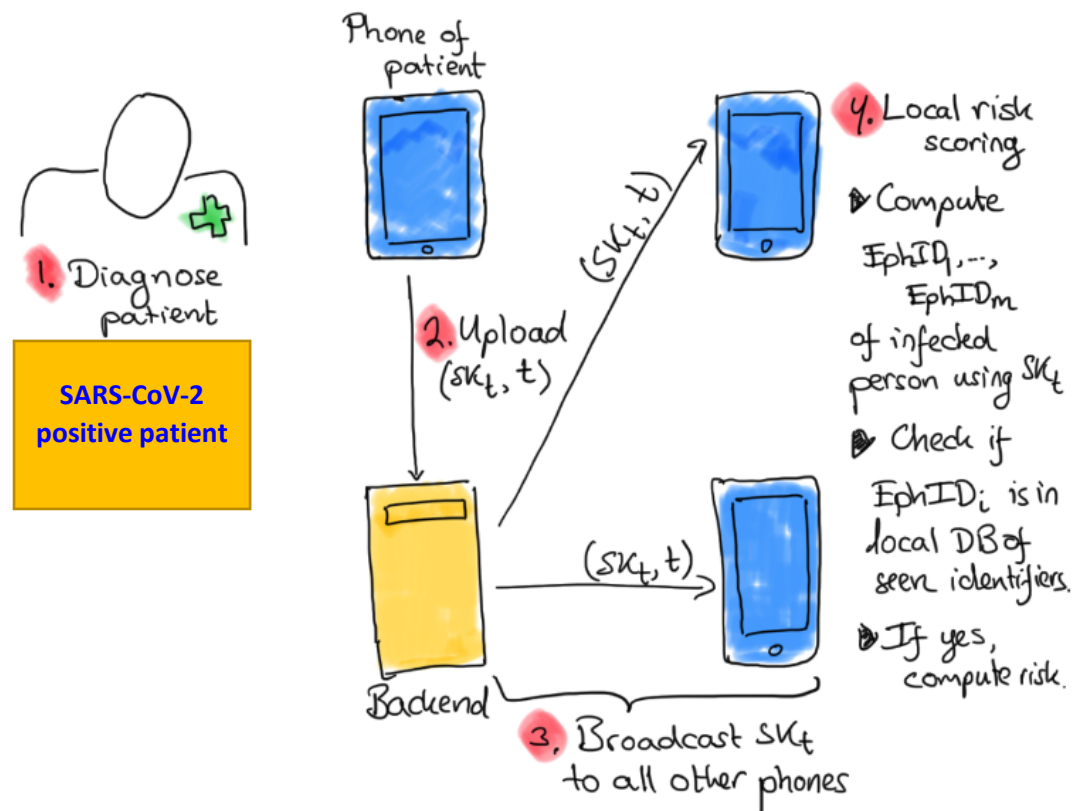 Phone of
patient
1. Diagnose
patient
SARS-CoV-2
positive patient
2. Upload
(SKt, t)
Backend
(SKt, t)
(SKt, t)
3. Broadcast SKt
to all other phones
4. Local risk
scoring
Compute
EphID1,...,
EphIDm
of infected
person using SKt
Check if
EphIDi is in
local DB of
seen identifiers.
If yes,
compute risk.